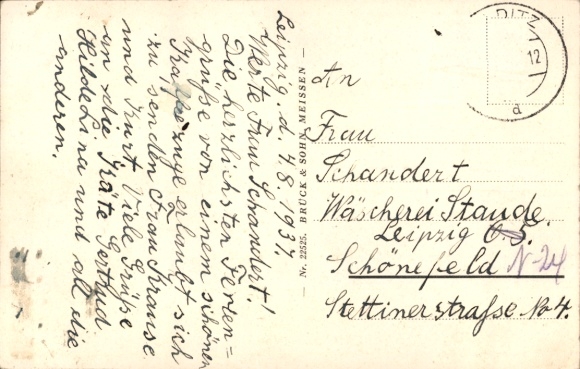 Leipzig. d. 4.8.1937.
Werte Frau Schandert!
Die herzlichsten Ferien=
grüße von einem schönen
erlaubt sich
zu senden Frau Krause
und Kurt. Viele Grüße
an die Gertrud
Hilde Lina und all die
anderen.
— Nr. 22525. BRÜCK & SOHN, MEISSEN —
12
a
An
Frau
Schandert
Wäscherei Staude.
Leipzig O5.
Schönefeld N-24
Stettinerstraße No 4.